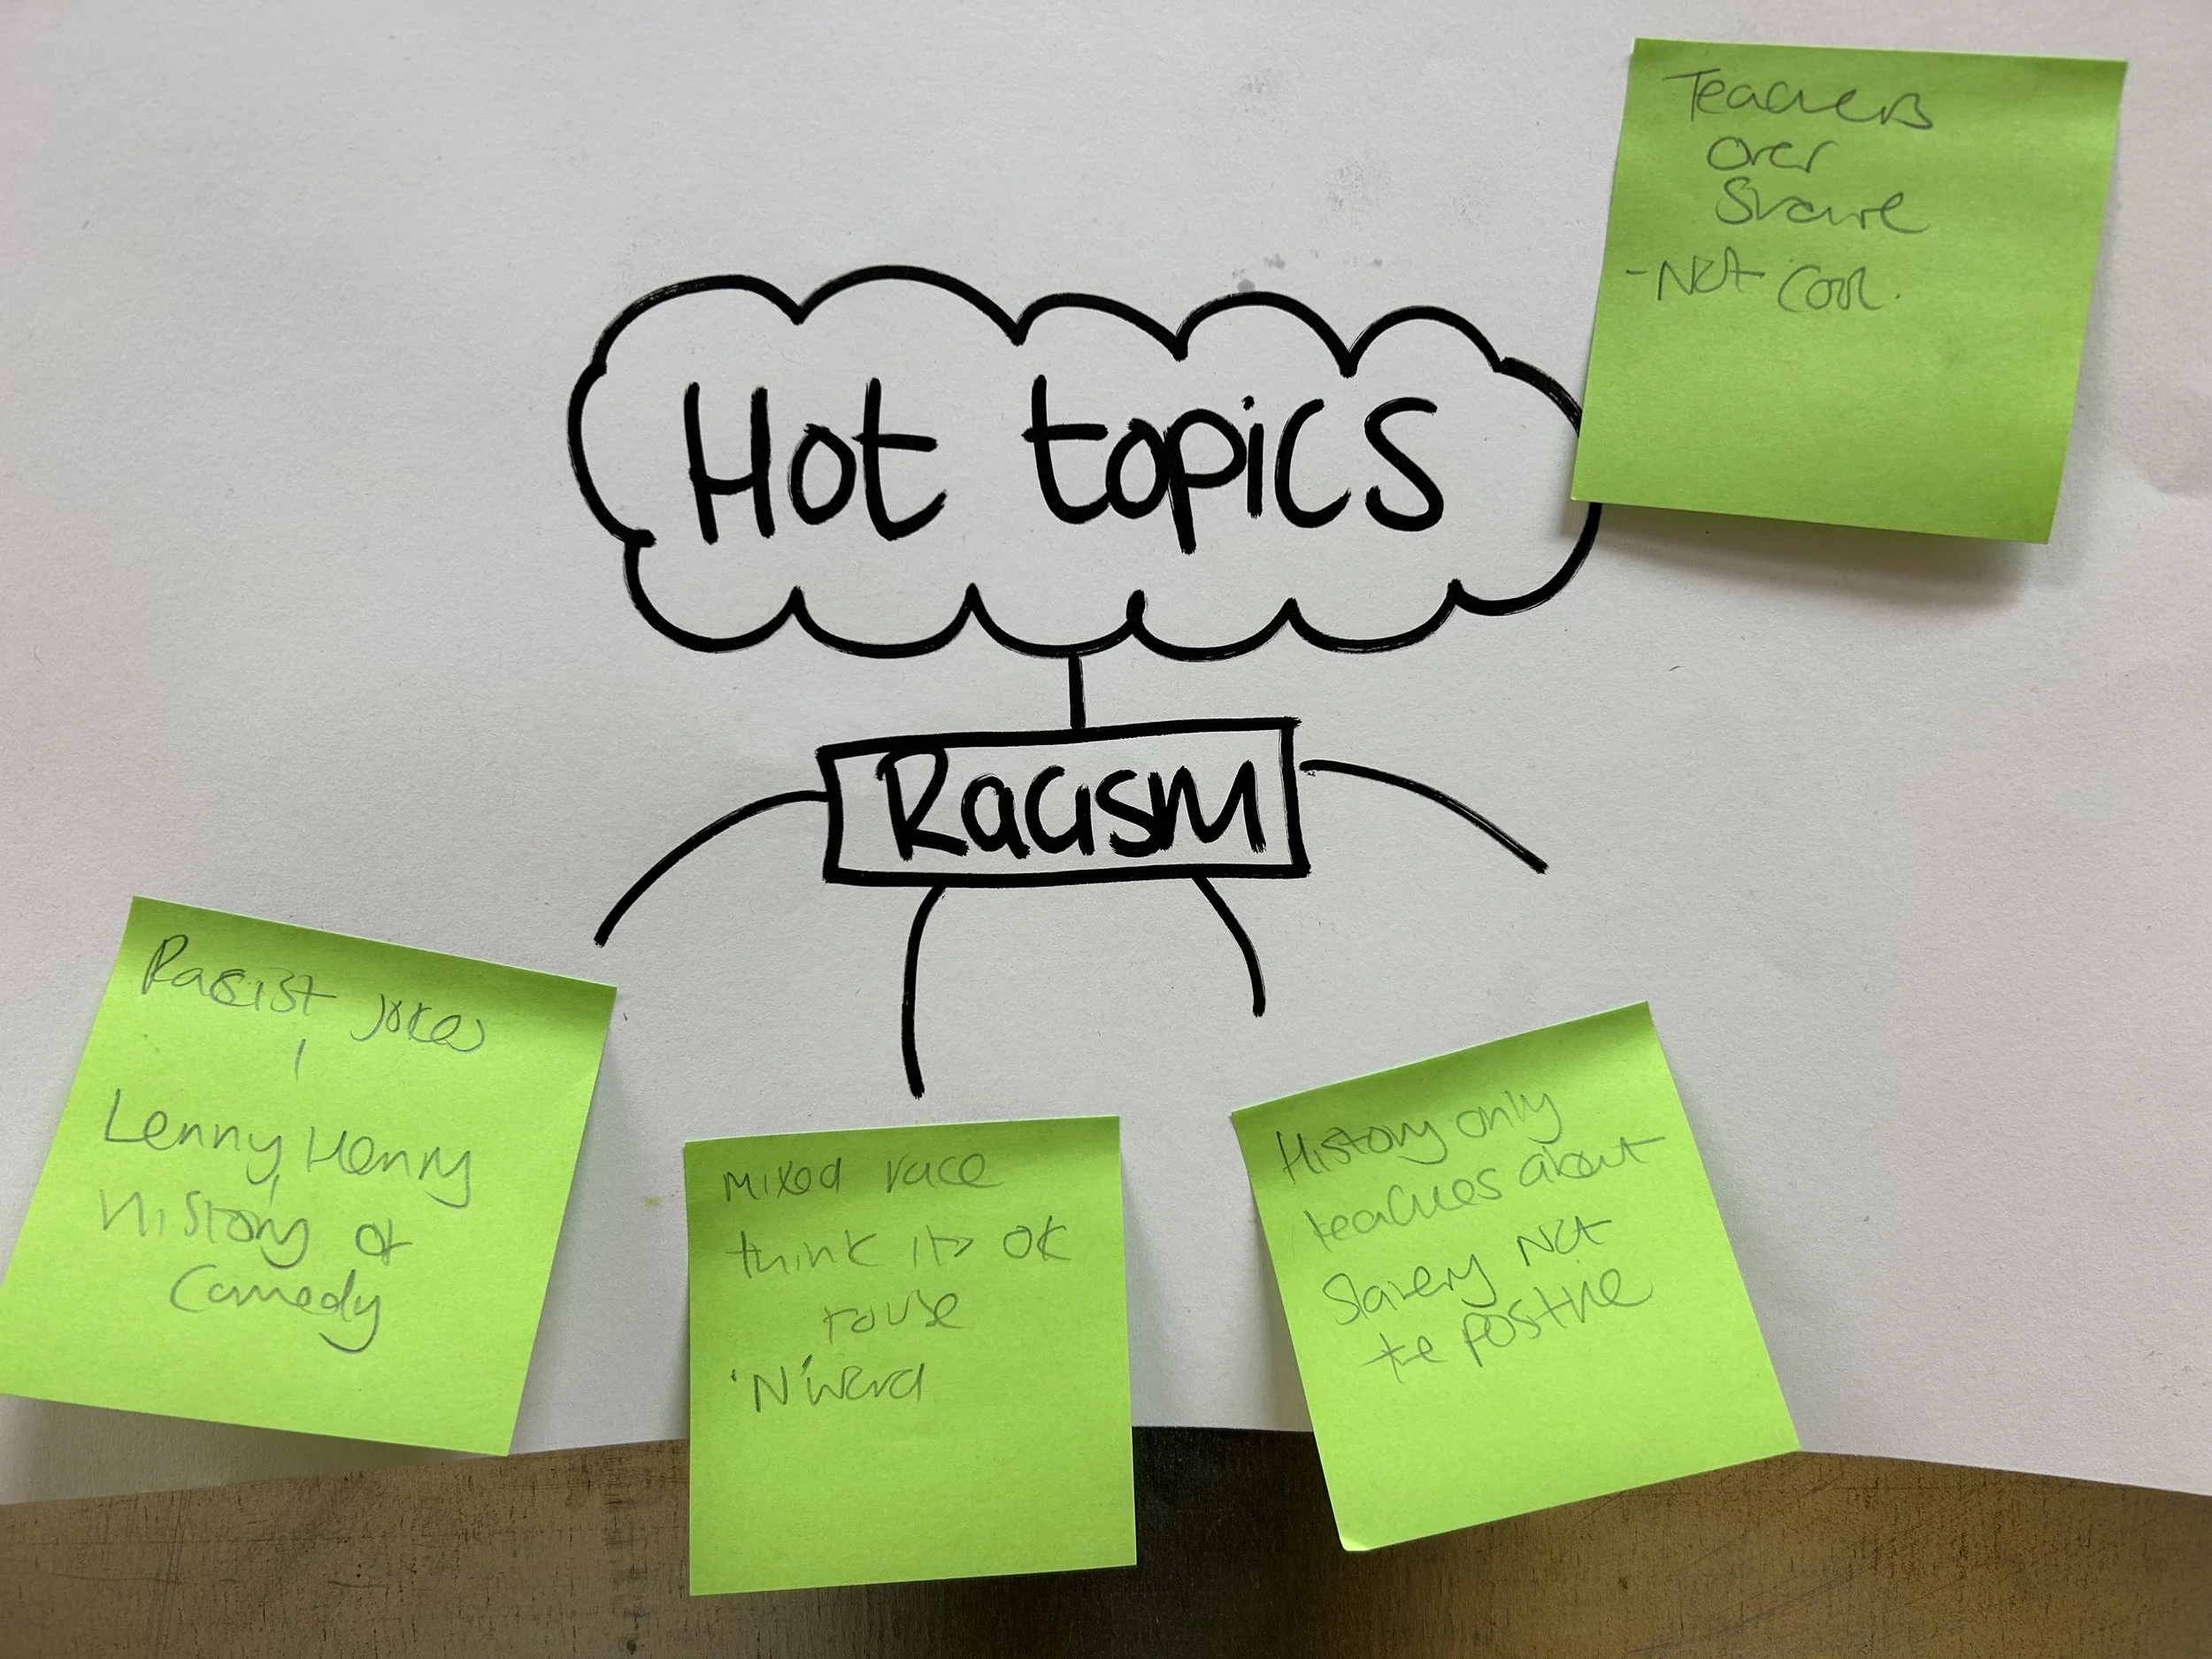 Teachers
over
Share
- Not Cool.
Hot topics
Racism
Racist jokes
Lenny Henry
History of
Comedy
Mixed race
think its ok
to use
'N' word
History only
teaches about
Slavery Not
the positive